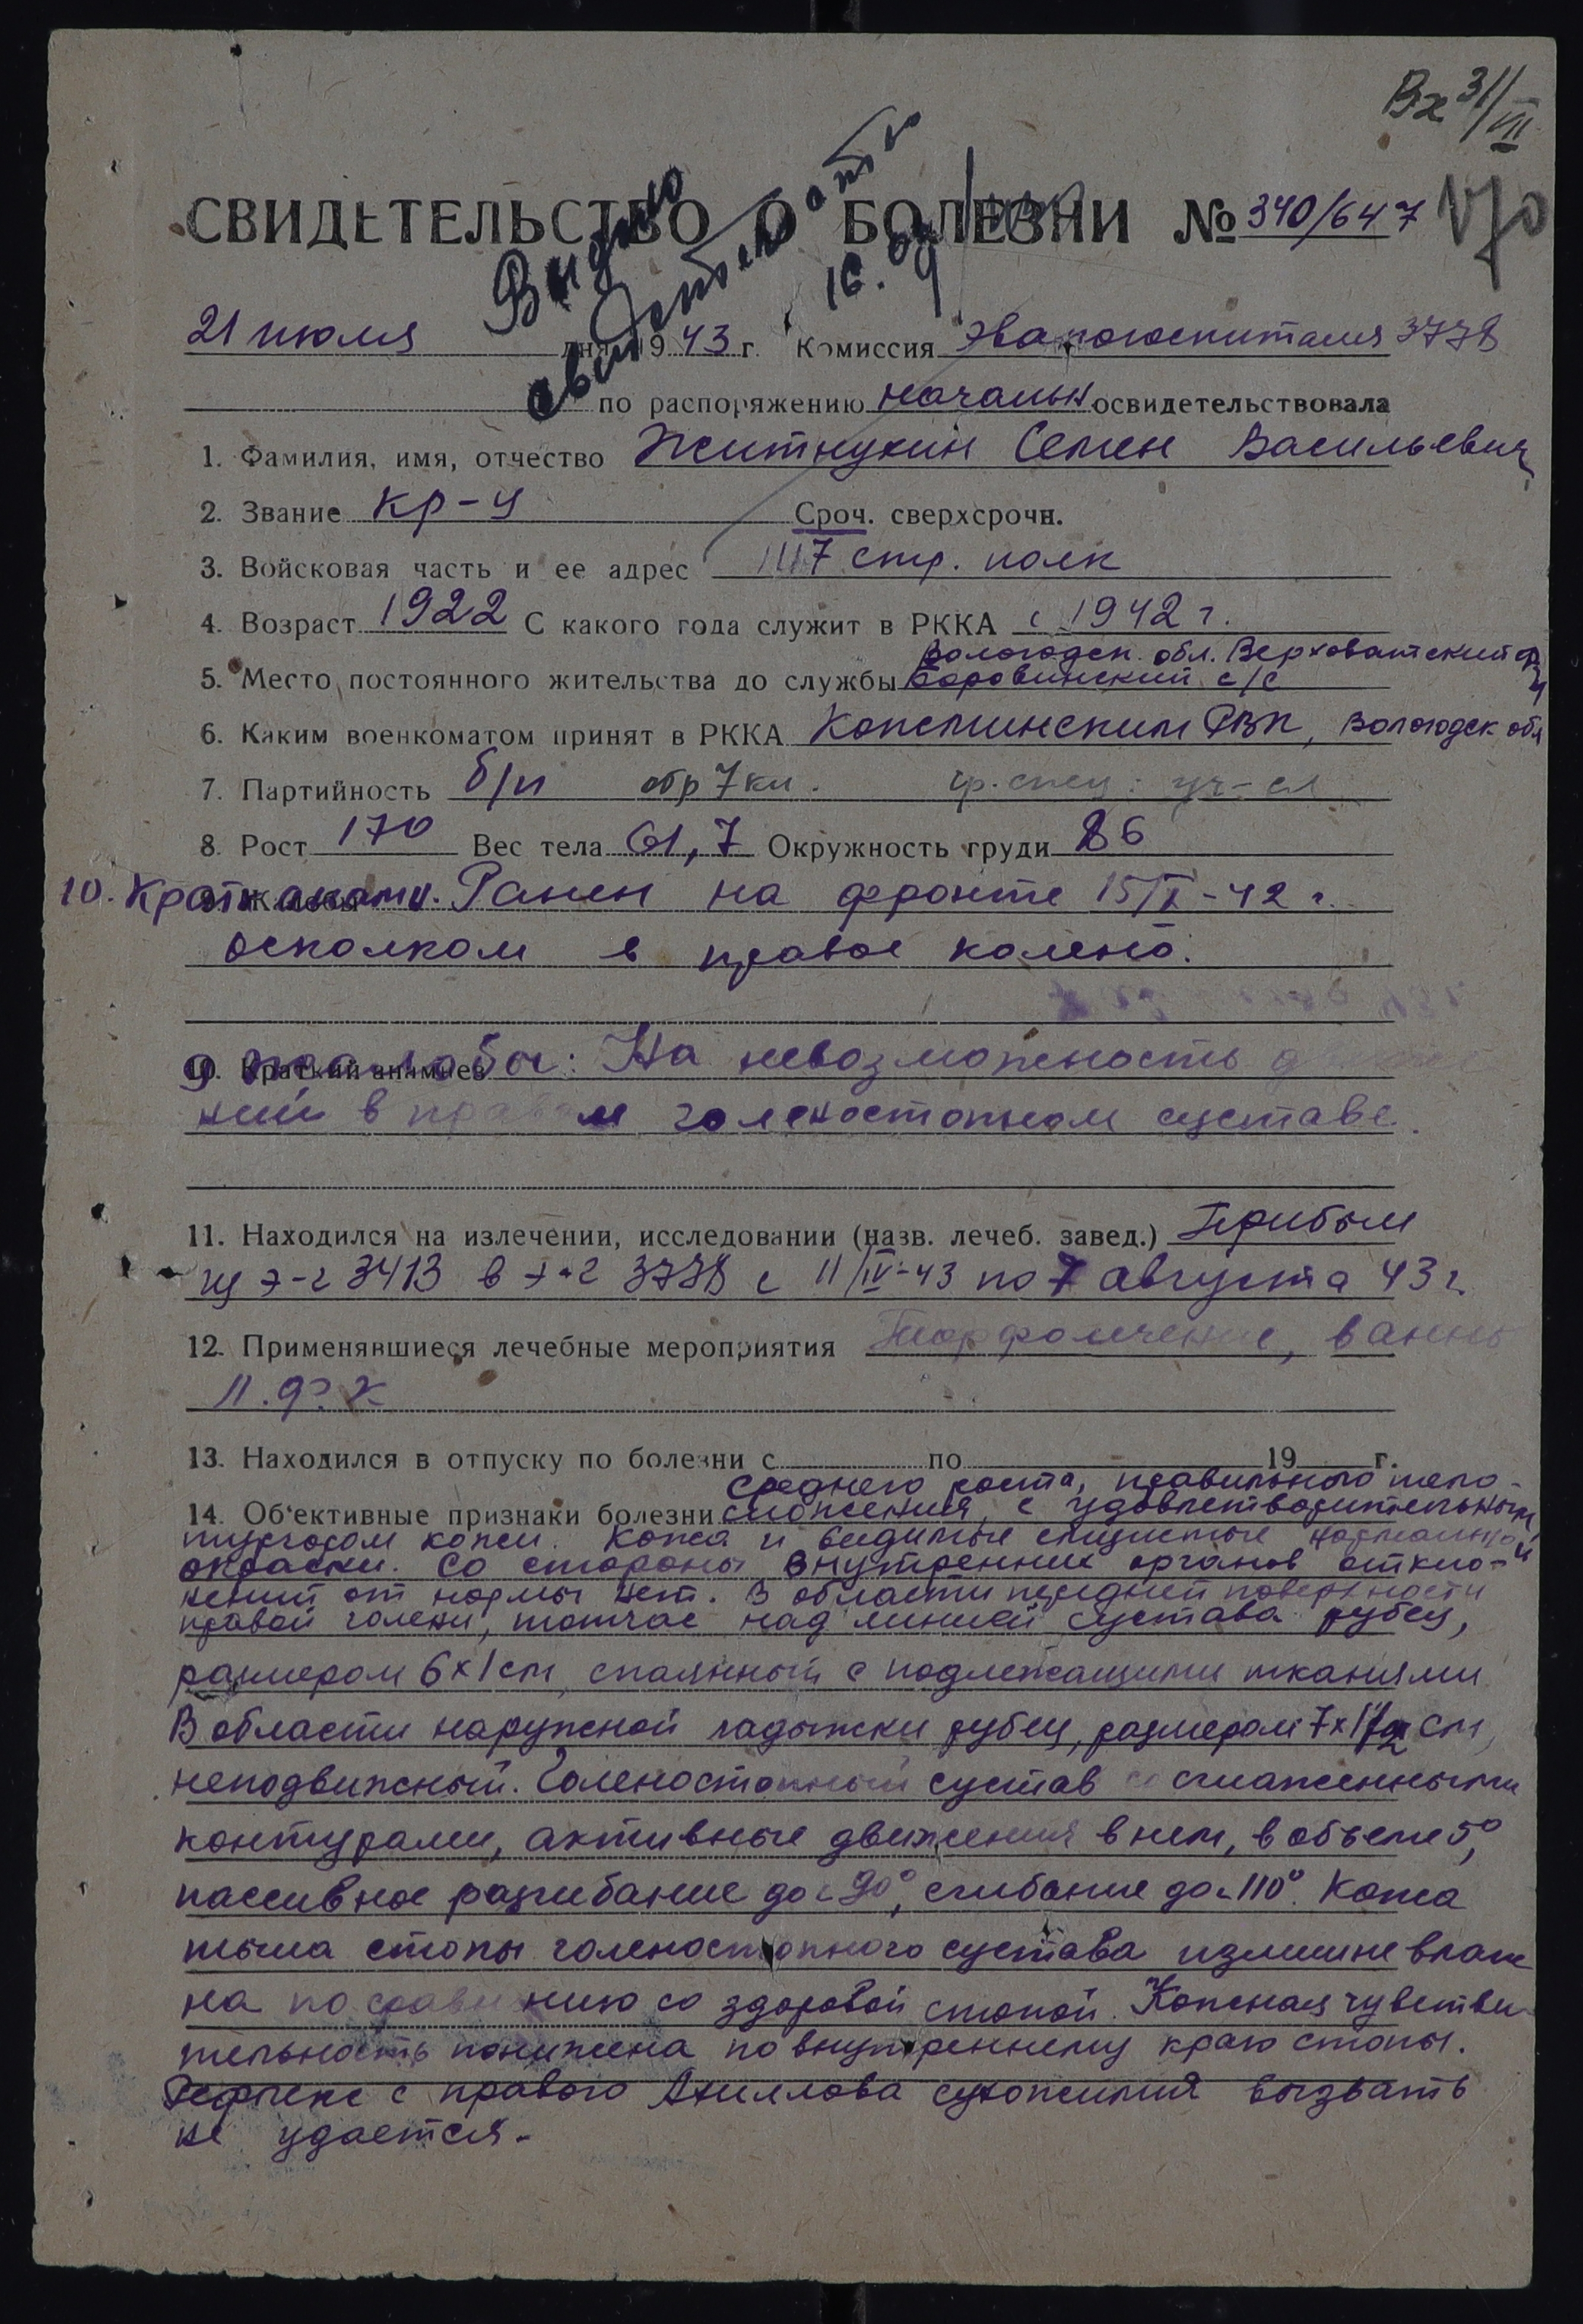 Вх 31/VII
СВИДЕТЕЛЬСТВО О БОЛЕЗНИ № 340/647
170
Выдано
16.
21 июля дня 1943 г. Комиссия Эвакогоспиталя 3778
по распоряжению начальн освидетельствовала
1. Фамилия, имя, отчество Житнухин Семен Васильевич
2. Звание кр-ц Сроч. сверхсрочн.
3. Войсковая часть и ее адрес 1117 стр. полк
4. Возраст 1922 С какого года служит в РККА с 1942 г.
Вологодск. обл. Верховажский р-н
5. Место постоянного жительства до службы Боровинский с/с
6. Каким военкоматом принят в РККА Кокшинским РВК, Вологодск обл
7. Партийность б/п обр 7 кл. гр.
8. Рост 170 Вес тела 61,7 Окружность груди 86
10. Кратк анамн. Ранен на фронте 15/X-42 г.
осколком в правое колено.
9 жалобы: На невозможность
10. Краткий анамнез
ний в правом голеностопном суставе.
11. Находился на излечении, исследовании (назв. лечеб. завед.) Прибыл
из э-г 3413 в э-г 3778 с 11/IV-43 по 7 августа 43 г.
12. Применявшиеся лечебные мероприятия Торфолечение, ванны
Л.Ф.К
13. Находился в отпуску по болезни с по 19 г.
среднего роста, правильного тело-
14. Об'ективные признаки болезни сложения, с удовлетворительным
тургором кожи. Кожа и видимые слизистые нормальной
окраски. Со стороны внутренних органов откло-
нений от нормы нет. В области передней поверхности
правой голени, тотчас над линией сустава рубец,
размером 6х1 см, спаянный с подлежащими тканями
В области наружной лодыжки рубец, размером 7х1 1/2 см,
неподвижный. Голеностопный сустав со сглаженными
контурами, активные движения в нем, в объеме 5°,
пассивное разгибание до 90°, сгибание до 110°. Кожа
тыла стопы голеностопного сустава излишне влаж
на по сравнению со здоровой стопой. Кожная чувстви
тельность понижена по внутреннему краю стопы.
Рефлекс с правого Ахиллова сухожилия вызвать
не удается.-